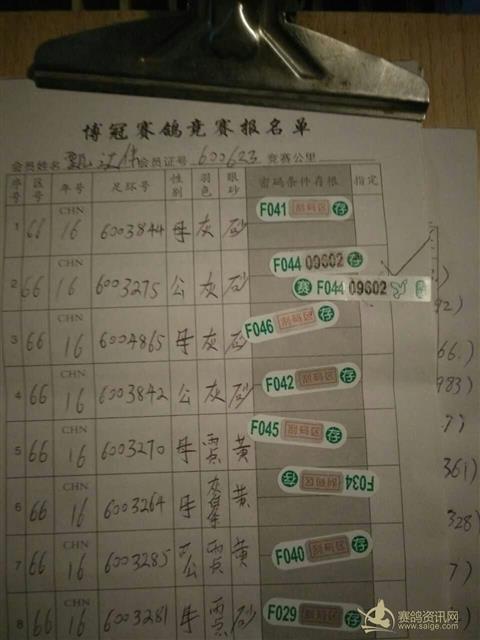 博冠赛鸽竞赛报名单
会员姓名 会员证号 600623 竞赛公里
序号 区号 年号 足环号 性别 羽色 眼砂 密码条件存根 指定
1 66 CHN 16 6003844 母 灰 砂 F041 刮码区 存
2 66 CHN 16 6003275 公 灰 砂 F044 09602 存
赛 F044 09602
3 66 CHN 16 6004865 母 灰 砂 F046 刮码区 存
4 66 CHN 16 6003842 公 灰 砂 F042 刮码区 存
5 66 CHN 16 6003270 母 雨点 黄 F045 刮码区 存
6 66 CHN 16 6003264 母 灰 黄 F034 刮码区 存
7 66 CHN 16 6003285 公 雨点 黄 F040 刮码区 存
8 66 CHN 16 6003281 母 雨点 砂 F029 刮码区 存
92)
66.)
983)
7)
361)
328)
7)
赛鸽资讯网
www.saige.com